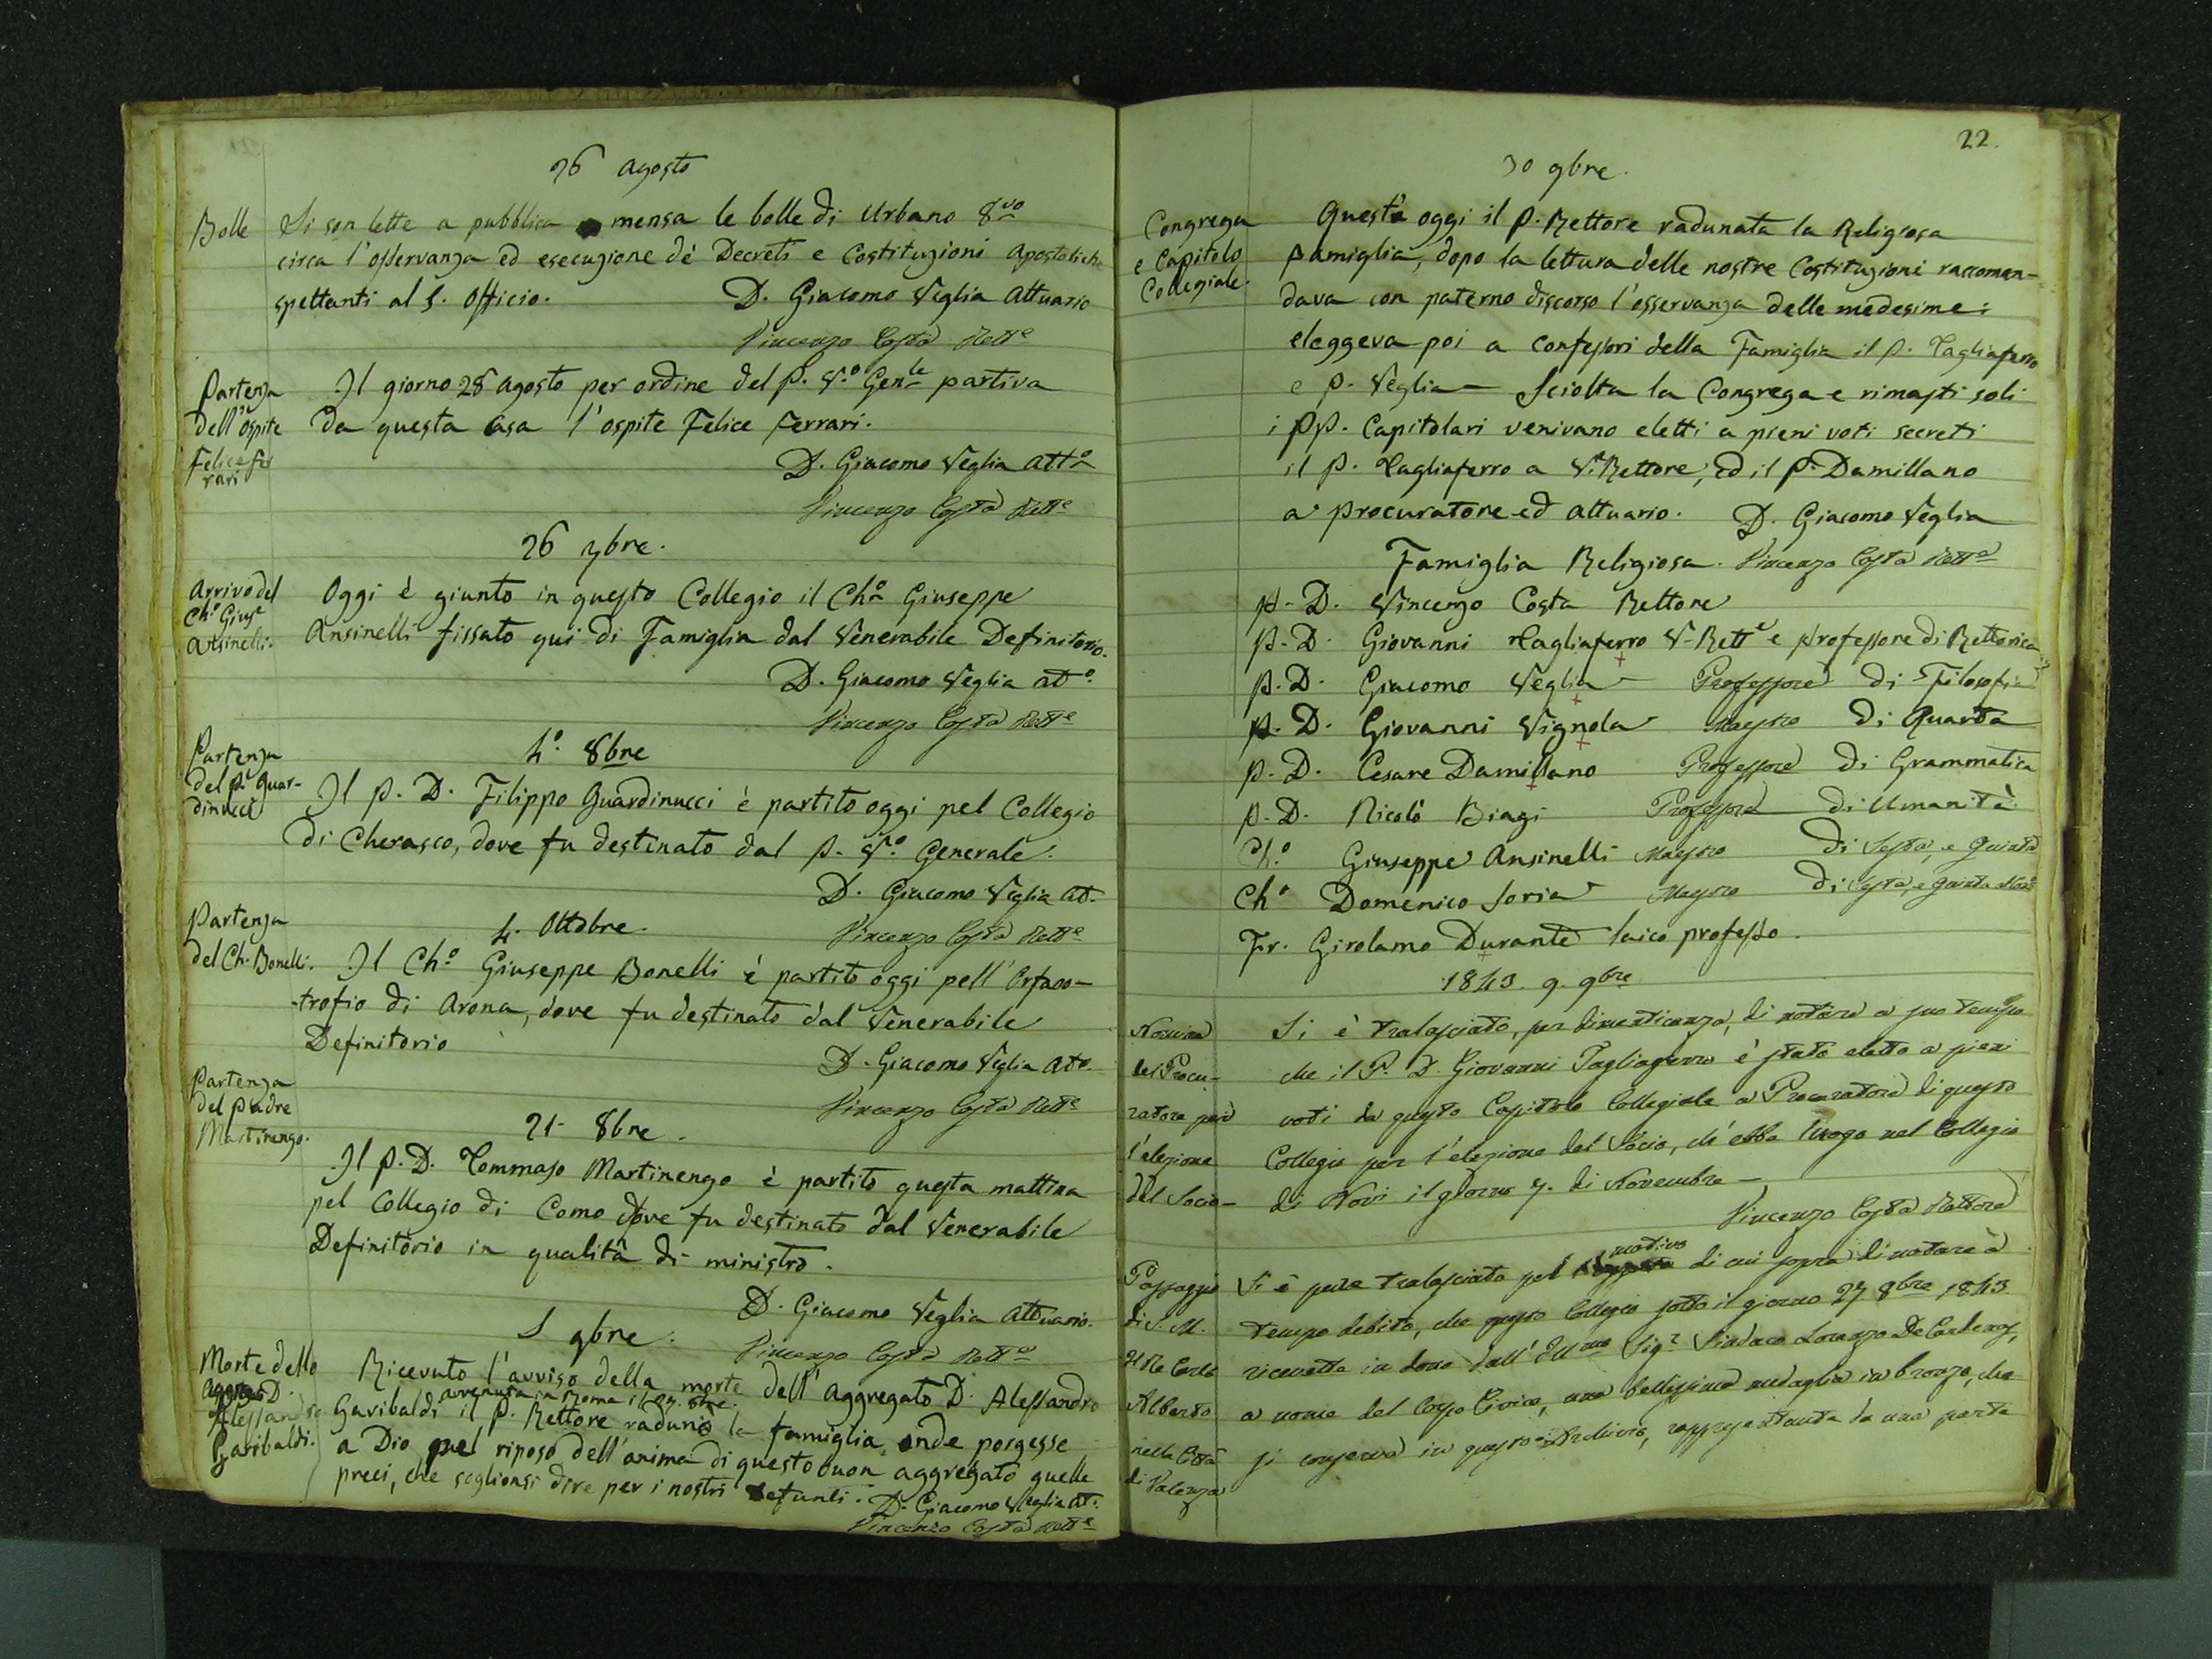 26 Agosto
Bolle
Si son lette a pubblica mensa le bolle di Urbano 8vo
circa l'osservanza ed esecuzione dè Decreti e Costituzioni Apostoliche
spettanti al S. Officio. D. Giacomo Veglia Attuario
Vincenzo Costa Rette
Partenza
dell'ospite
Felice Fer
rari
Il giorno 28 Agosto per ordine del P. Vo. Genle partiva
da questa Casa l'ospite Felice Ferrari.
D. Giacomo Veglia Atto
Vincenzo Costa Rette
26 7bre.
Arrivo del
Cho Giuse
Ansinelli.
Oggi è giunto in questo Collegio il Cho Giuseppe
Ansinelli fissato qui di Famiglia dal Venerabile Definitorio.
D. Giacomo Veglia Ato.
Vincenzo Costa Rette
Partenza
del P. Guar-
dinucci
4o. 8bre
Il P. D. Filippo Guardinucci è partito oggi pel Collegio
di Cherasco, dove fu destinato dal P. Vo. Generale.
D. Giacomo Veglia At.
Vincenzo Costa Rette
Partenza
del Ch. Bonelli.
4. Ottobre.
Il Cho Giuseppe Bonelli è partito oggi pell'Orfano-
-trofio di Arona, dove fu destinato dal Venerabile
Definitorio
D. Giacomo Veglia Ato
Vincenzo Costa Rette
Partenza
del Padre
Martinengo.
21. 8bre.
Il P. D. Tommaso Martinengo è partito questa mattina
pel Collegio di Como dove fu destinato dal Venerabile
Definitorio in qualità di ministro.
D. Giacomo Veglia Attuario.
Vincenzo Costa Rette
9bre.
Morte dello
D.
Alessandro
Garibaldi.
Ricevuto l'avviso della morte dell'Aggregato D. Alessandro
avvenuta in Roma il 8bre.
Garibaldi il P. Rettore radunò la famiglia, onde porgesse
a Dio pel riposo dell'anima di questo buon aggregato quelle
preci, che soglionsi dire per i nostri defunti. D. Giacomo Veglia At.
Vincenzo Costa Rette
22.
30 9bre.
Congrega
e Capitolo
Collegiale.
Quest'oggi il P. Rettore radunata la Religiosa
Famiglia, dopo la lettura delle nostre Costituzioni raccoman-
dava con paterno discorso l'osservanza delle medesime:
eleggeva poi a confessori della Famiglia il P. Tagliaferro
e P. Veglia — Sciolta la Congrega e rimasti soli
i PP. Capitolari venivano eletti a pieni voti secreti
il P. Tagliaferro a V. Rettore, ed il P. Damillano
a Procuratore ed Attuario. D. Giacomo Veglia
Famiglia Religiosa. Vincenzo Costa Rette
P. D. Vincenzo Costa Rettore
P. D. Giovanni Tagliaferro V-Rette e Professore di Rettorica
P. D. Giacomo Veglia Professore di Filosofia
P. D. Giovanni Vignola Maestro di Quarta
P. D. Cesare Damillano Professore di Grammatica
P. D. Nicolò Biagi Professore di Umanità
Cho. Giuseppe Ansinelli Maestro di Sesta, e Quinta
Cho Domenico Soria Maestro di Sesta, e Quinta
Fr. Girolamo Durante laico professo.
1843. 9. 9bre
Nomina
del Procu-
ratore per
l'elezione
del Socio-
Si è tralasciato, per dimenticanza, di notare a suo tempo
che il P. D. Giovanni Tagliaferro è stato eletto a pieni
voti da questo Capitolo Collegiale a Procuratore di questo
Collegio per l'elezione del Socio, ch'ebbe luogo nel Collegio
di Novi il giorno 7. di Novembre —
Vincenzo Costa Rettore
Passaggio
di S. M.
il Re Carlo
Alberto
nella Città
di Valenza
motivo
Si è pure tralasciato pel di cui sopra di notare a
tempo debito, che questo Collegio sotto il giorno 27. 8bre 1843
ricevette in dono dall'Illmo Sigr Sindaco Lorenzo De Cardenas,
a nome del Corpo Civico, una bellissima medaglia in bronzo, che
si conserva in questo Archivio, rappresentante da una parte